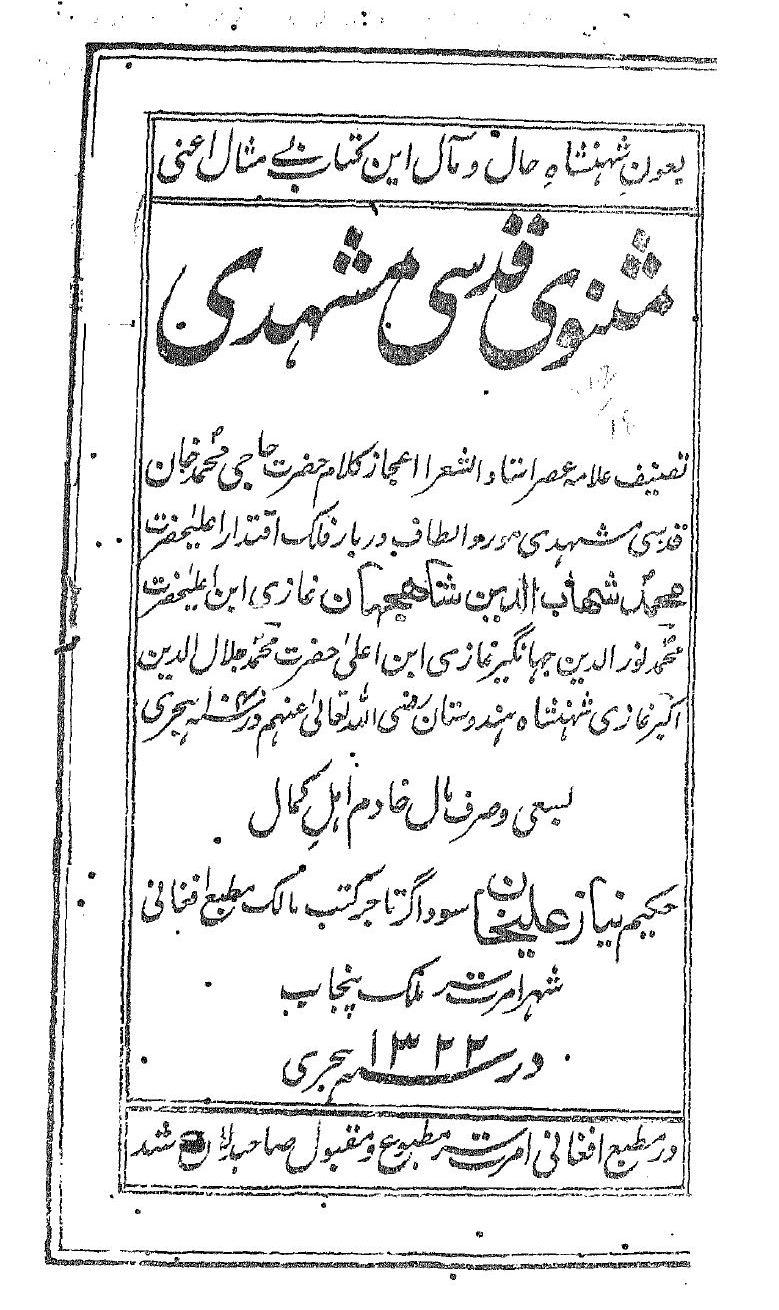 بعونِ شہنشاہِ حال و مآل این کتاب بے مثال اعنی
مثنوی قدسی مشہدی
تصنیف علامہ عصر استاد الشعرا اعجاز کلام حضرت حاجی محمد خان
قدسی مشہدی مورد الطاف دربار فلک اقتدار اعلیحضرت
محمد شہاب الدین شاھجہان غازی ابن اعلیحضرت
محمد نور الدین جہانگیر غازی ابن اعلیٰ حضرت محمد جلال الدین
اکبر غازی شہنشاہ ہندوستان رضی اللہ تعالیٰ عنہم در ہجری
بسعی و صرف مال خادم اہلِ کمال
حکیم نیاز علیخان سوداگر تاجر کتب مالک مطبع افغانی
شہر امرتسر ملک پنجاب
در ۱۳۲۲ ہجری
در مطبع افغانی امرتسر مطبوع و مقبول صاحبدلان شد